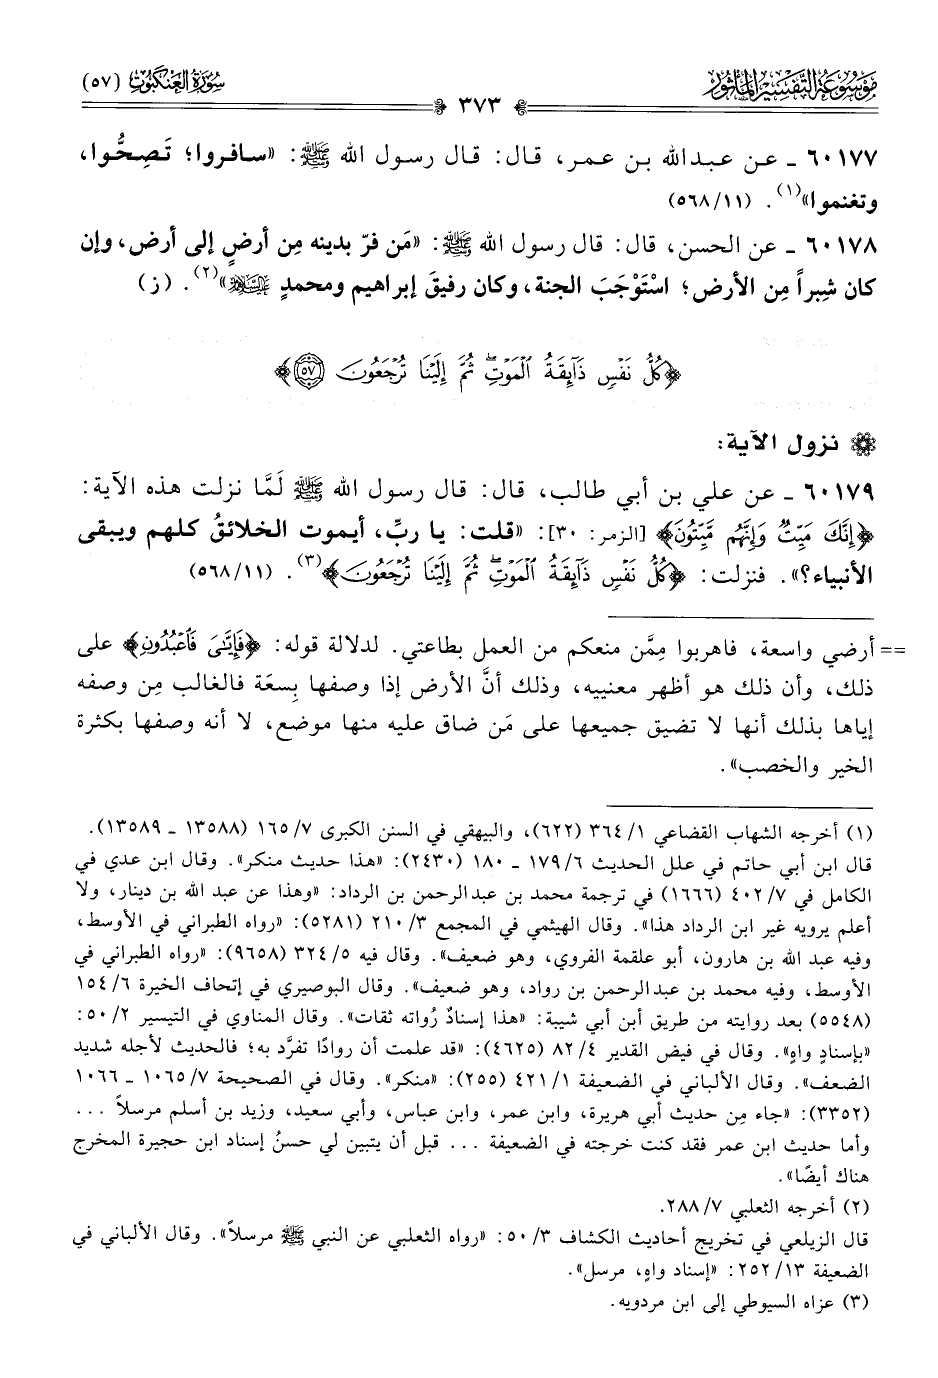 موسوعة التفسير المأثور
سورة العنكبوت (٥٧)
٣٧٣
٦٠١٧٧ ـ عن عبدالله بن عمر، قال: قال رسول الله ﷺ: «سافروا؛ تَصِحُّوا،
وتغنموا»(١). (٥٦٨/١١)
٦٠١٧٨ ـ عن الحسن، قال: قال رسول الله ﷺ: «مَن فرّ بدينه مِن أرضٍ إلى أرض، وإن
كان شِبراً مِن الأرض؛ اسْتَوْجَبَ الجنة، وكان رفيقَ إبراهيم ومحمدٍ »(٢). (ز)
﴿كُلُّ نَفْسٍ ذَآئِقَةُ ٱلْمَوْتِۖ ثُمَّ إِلَيْنَا تُرْجَعُونَ ٥٧﴾
نزول الآية:
٦٠١٧٩ ـ عن علي بن أبي طالب، قال: قال رسول الله ﷺ لَمَّا نزلت هذه الآية:
﴿إِنَّكَ مَيِّتٌ وَإِنَّهُم مَّيِّتُونَ﴾ [الزمر: ٣٠]: «قلت: يا ربِّ، أيموت الخلائقُ كلهم ويبقى
الأنبياء؟». فنزلت: ﴿كُلُّ نَفْسٍ ذَآئِقَةُ ٱلْمَوْتِۖ ثُمَّ إِلَيْنَا تُرْجَعُونَ﴾(٣). (٥٦٨/١١)
== أرضي واسعة، فاهربوا مِمَّن منعكم من العمل بطاعتي. لدلالة قوله: ﴿فَإِيَّٰىَ فَٱعْبُدُونِ﴾ على
ذلك، وأن ذلك هو أظهر معنييه، وذلك أنَّ الأرض إذا وصفها بِسعَة فالغالب مِن وصفه
إياها بذلك أنها لا تضيق جميعها على مَن ضاق عليه منها موضع، لا أنه وصفها بكثرة
الخير والخصب».
(١) أخرجه الشهاب القضاعي ٣٦٤/١ (٦٢٢)، والبيهقي في السنن الكبرى ١٦٥/٧ (١٣٥٨٨ ـ ١٣٥٨٩).
قال ابن أبي حاتم في علل الحديث ١٧٩/٦ ـ ١٨٠ (٢٤٣٠): «هذا حديث منكر». وقال ابن عدي في
الكامل في ٤٠٢/٧ (١٦٦٦) في ترجمة محمد بن عبدالرحمن بن الرداد: «وهذا عن عبد الله بن دينار، ولا
أعلم يرويه غير ابن الرداد هذا». وقال الهيثمي في المجمع ٢١٠/٣ (٥٢٨١): «رواه الطبراني في الأوسط،
وفيه عبد الله بن هارون، أبو علقمة الفروي، وهو ضعيف». وقال فيه ٣٢٤/٥ (٩٦٥٨): «رواه الطبراني في
الأوسط، وفيه محمد بن عبدالرحمن بن رواد، وهو ضعيف». وقال البوصيري في إتحاف الخيرة ١٥٤/٦
(٥٥٤٨) بعد روايته من طريق أبن أبي شيبة: «هذا إسنادٌ رُواته ثقات». وقال المناوي في التيسير ٥٠/٢:
«بإسنادٍ واهٍ». وقال في فيض القدير ٨٢/٤ (٤٦٢٥): «قد علمت أن روادًا تفرَّد به؛ فالحديث لأجله شديد
الضعف». وقال الألباني في الضعيفة ٤٢١/١ (٢٥٥): «منكر». وقال في الصحيحة ١٠٦٥/٧ ـ ١٠٦٦
(٣٣٥٢): «جاء مِن حديث أبي هريرة، وابن عمر، وابن عباس، وأبي سعيد، وزيد بن أسلم مرسلاً ...
وأما حديث ابن عمر فقد كنت خرجته في الضعيفة ... قبل أن يتبين لي حسنُ إسناد ابن حجيرة المخرج
هناك أيضًا».
(٢) أخرجه الثعلبي ٢٨٨/٧.
قال الزيلعي في تخريج أحاديث الكشاف ٥٠/٣: «رواه الثعلبي عن النبي ﷺ مرسلاً». وقال الألباني في
الضعيفة ٢٥٢/١٣: «إسناد واهٍ، مرسل».
(٣) عزاه السيوطي إلى ابن مردويه.